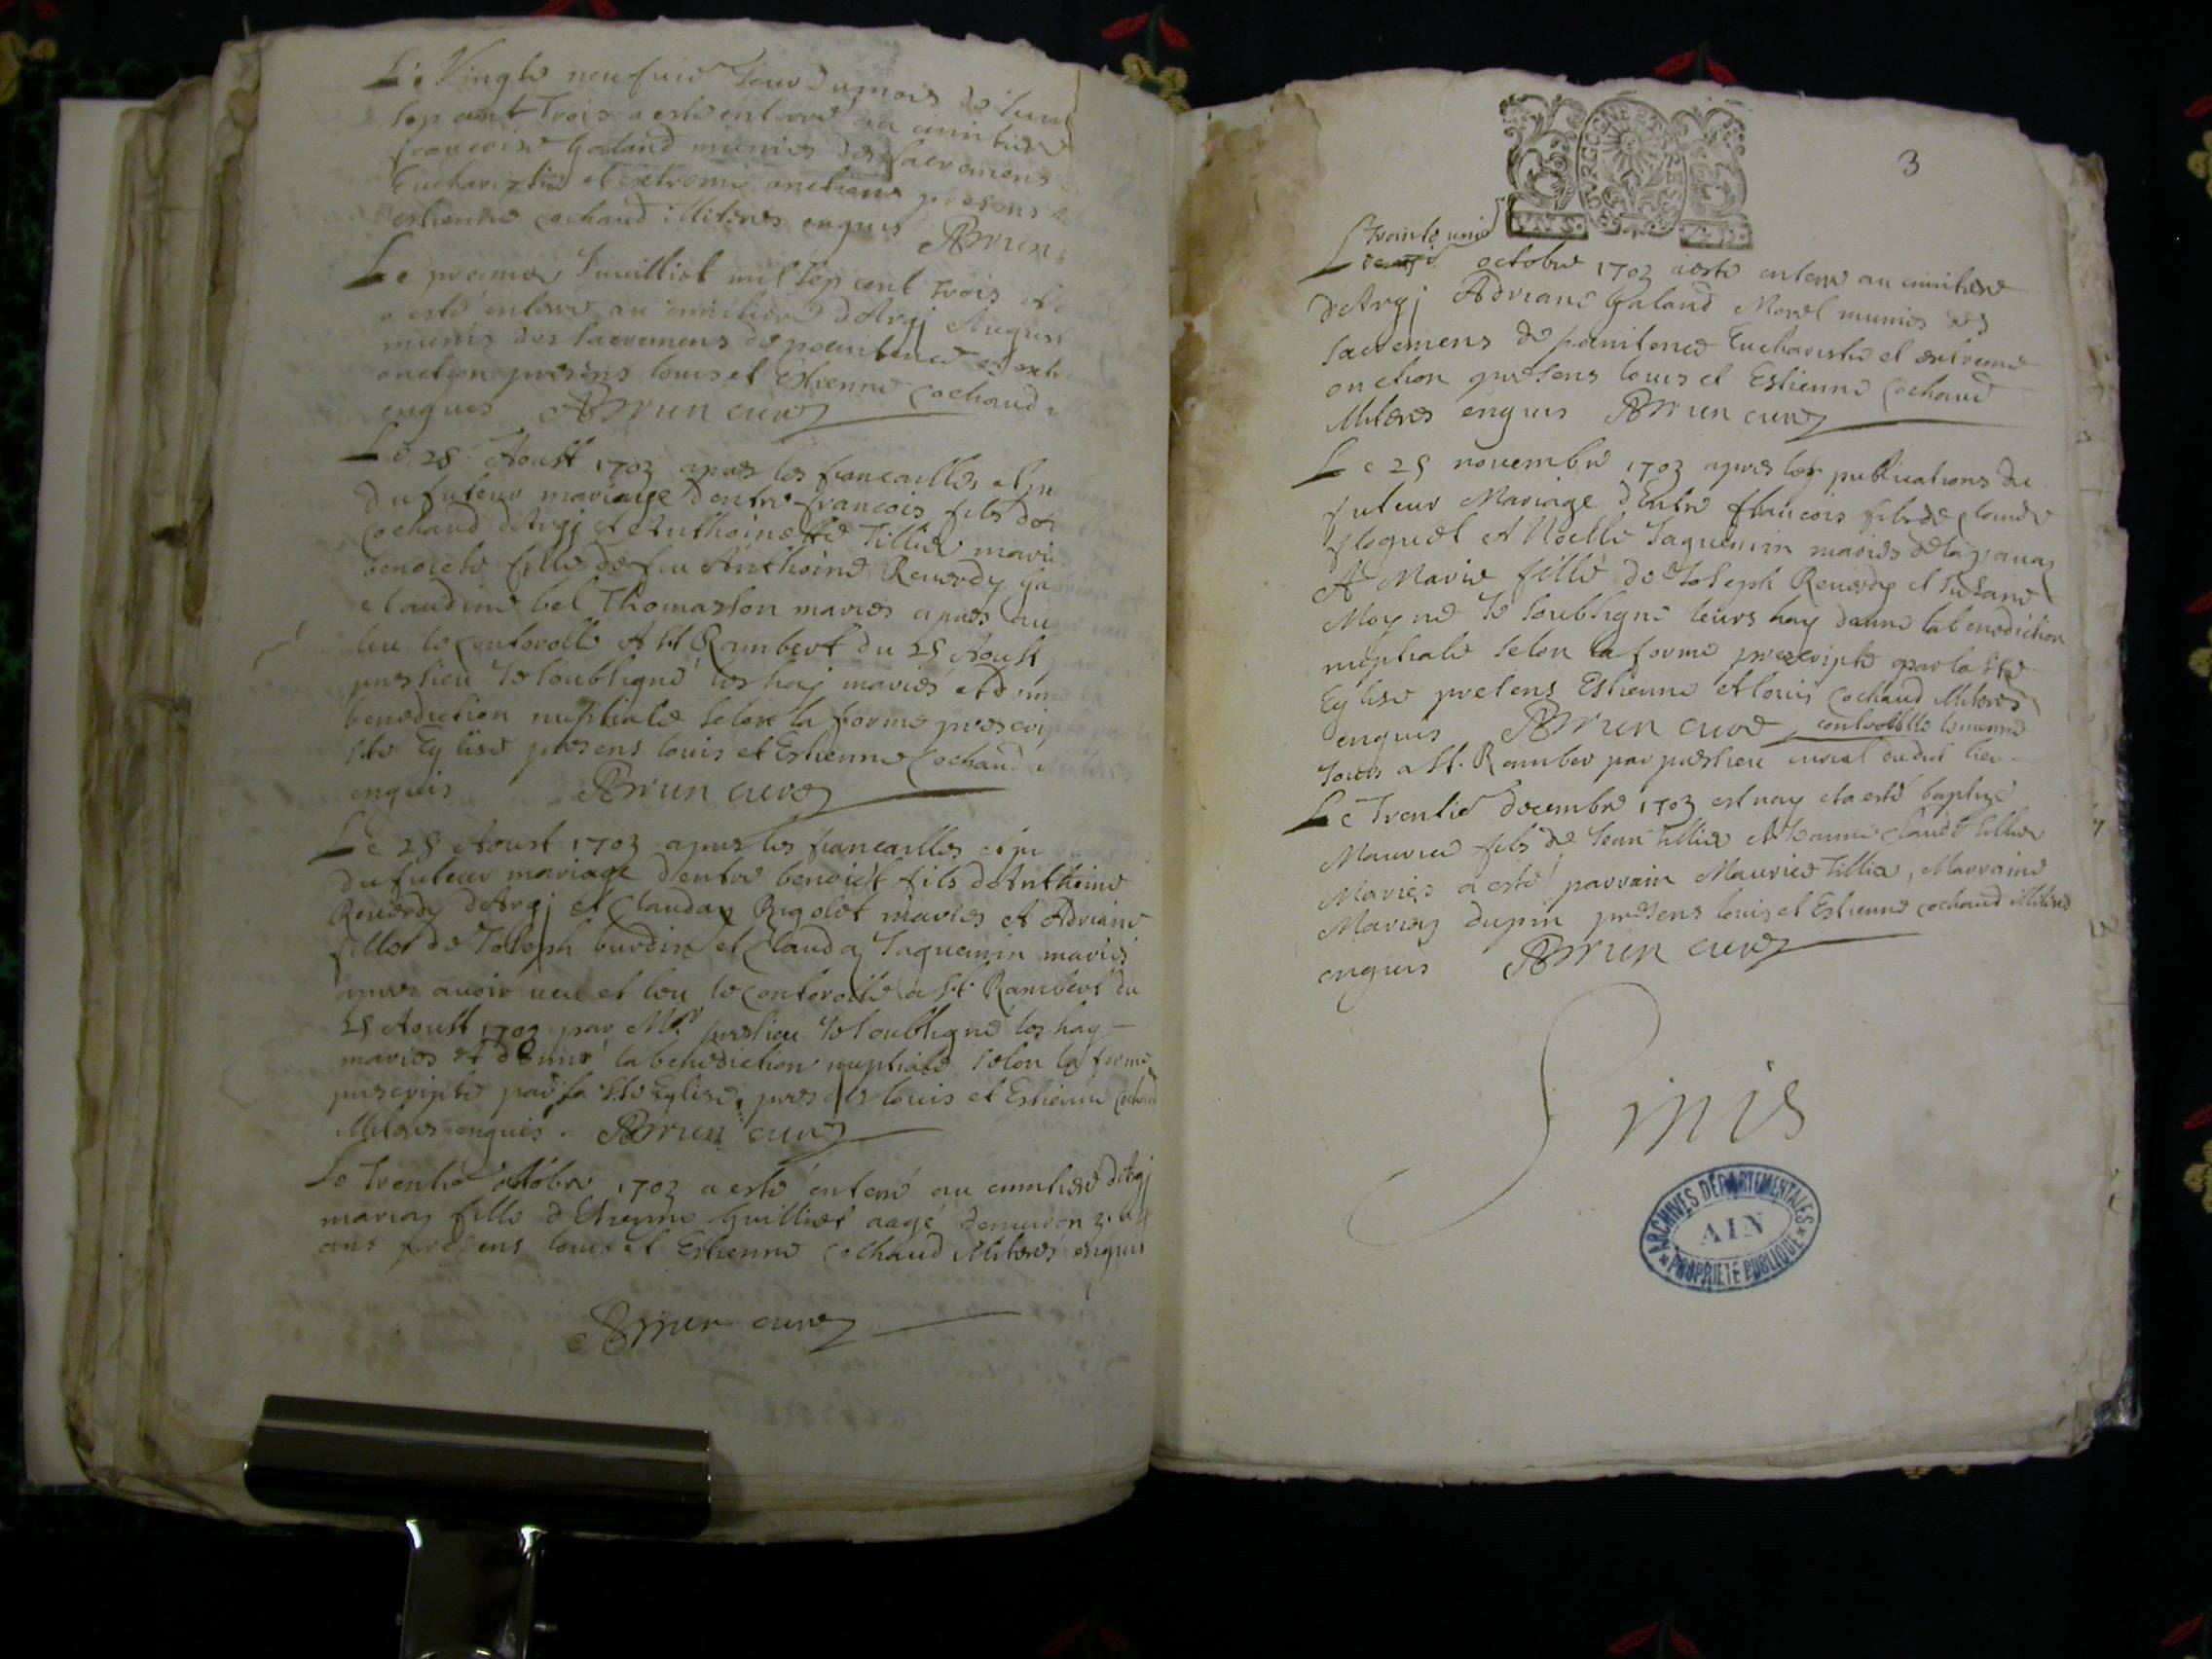 Le Vingte neufuie Jour du mois de Jun
sept cent Trois a esté enterré au cimitiere
francoise Galand munies des sacremens
Eucharistie et extreme onctions presens
estienne cochaud illiteres enquis ABrun
Le premier Jueilliet mil sept cent trois
a esté enterré au cimitiere d'Argj August
munis des sacremens de poenitence et extr
onction presens louis et Estienne Cochaud
enquis ABrun curé
Le 28 Aoust 1703 apres les fiancailles et pu
du futeur mariage d'entre francois fils de
Cochaud d'Argj et Anthoinette Tillier marié
benoiste fille de feu Anthoine Reuerdy
claudine bel Thomasson mariés apres
leu le controlle A St Rambert du 25 Aoust
preslieu Je soubsigné les hay mariés et donné
benediction nuptiale selon la forme prescri
Ste Eglise presens louis et Estienne Cochaud
enquis ABrun curé
Le 28 Aoust 1703 apres les fiancailles et pu
du futeur mariage d'entre benoist fils d'Anthoine
Reuerdy d'Argj et Clauday Rigolet mariés et Adriane
fille de Joseph burdin et Clauday Jaquemin mariés
apres auoir ueu et leu le controlle a St Rambert du
25 Aoust 1703 par Mr preslieu Je soubsigné les hay
mariés et donné la benediction nuptiale selon la forme
prescripte par la Ste Eglise, presens louis et Estienne Cochaud
illiteres enquis. ABrun curé
Le Trentie octobre 1703 a esté enterré au cimitiere d'Argj
mariay fille d'Etienne Guilliet aagé d'enuiron 3 a 4
ans presens louis et Estienne Cochaud illiteres enquis
ABrun curé
3
BVRGOGNE ET BRESSE
trante unie
Le octobre 1703 a esté enterré au cimitiere
d'Argj Adriane Galand Morel munies des
sacremens de penitence Eucharistie et extreme
onction presens louis et Estienne Cochaud
illiteres enquis ABrun curé
Le 25 nouembre 1703 apres les publications du
futeur Mariage d'Entre francois fils de claude
floquet et Noelle Jaquemin mariés de la
et Marie fille de Joseph Reuerdy et Susane
Moyne Je soubsigné leurs hay donné la benediction
nuptiale selon la forme prescripte par la Ste
Eglise presens Estienne et louis Cochaud illiteres
enquis ABrun curé controllé le mesme
Jour a St. Rambert par preslieu curial dudit lieu
Le Trentie decembre 1703 est nay et a esté baptisé
Maurice fils de Jean tillier et Jeanne claude tillier
Mariés a esté parrain Maurice Tillier, Marraine
Mariay dupin presens louis et Estienne cochaud illiteres
enquis ABrun curé
Finis
ARCHIVES DÉPARTEMENTALES
AIN
PROPRIÉTÉ PUBLIQUE